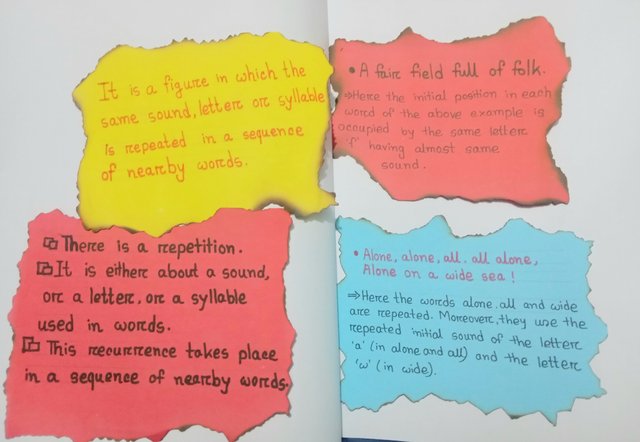 It is a figure in which the
same sound, letter or syllable
is repeated in a sequence
of nearby words.
There is a repetition.
It is either about a sound,
or a letter, or a syllable
used in words.
This recurrence takes place
in a sequence of nearby words.
• A fair field full of folk.
⇒Here the initial position in each
word of the above example is
occupied by the same letter
'f' having almost same
sound.
• Alone, alone, all, all alone,
Alone on a wide sea!
⇒Here the words alone, all and wide
are repeated. Moreover, they use the
repeated initial sound of the letter
'a' (in alone and all) and the letter
'w' (in wide).